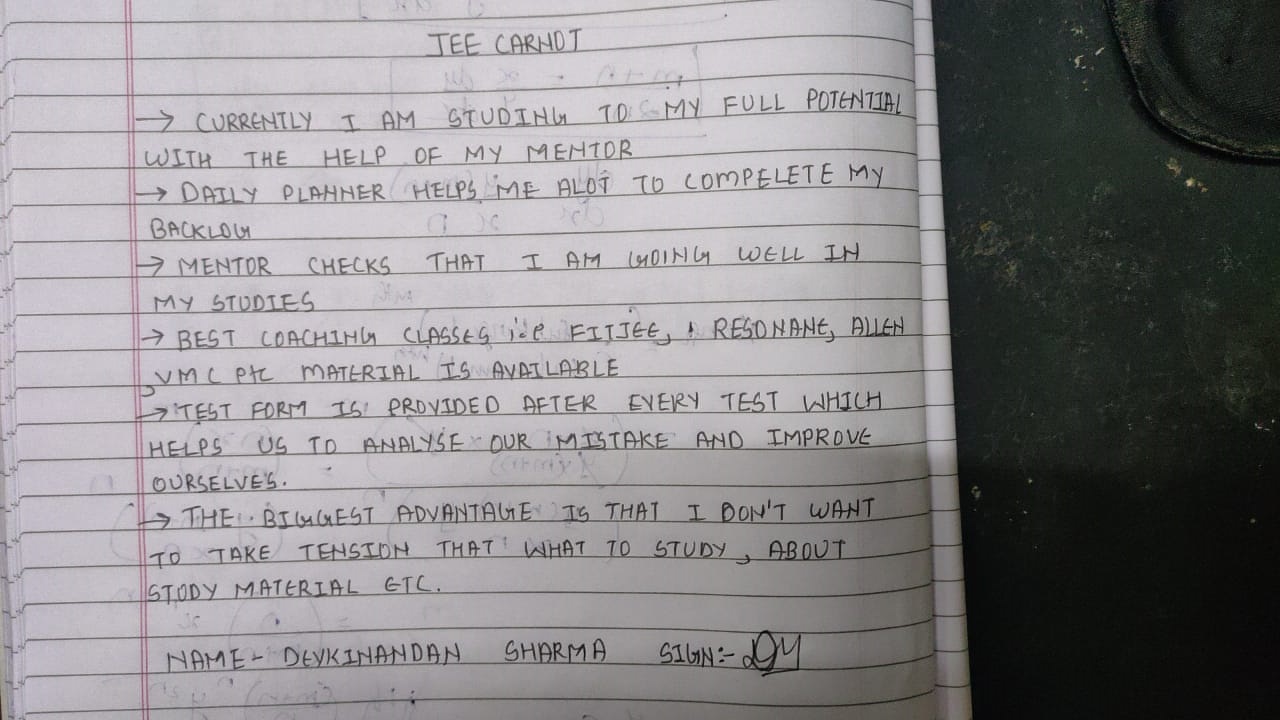 JEE CARNOT
→ CURRENTLY I AM STUDING TO MY FULL POTENTIAL
WITH THE HELP OF MY MENTOR
→ DAILY PLANNER HELPS ME ALOT TO COMPELETE MY
BACKLOG
→ MENTOR CHECKS THAT I AM GOING WELL IN
MY STUDIES
→ BEST COACHING CLASSES i.e FIJJEE, RESONANE, ALLEN
, VMC etc MATERIAL IS AVAILABLE
→ TEST FORM IS PROVIDED AFTER EVERY TEST WHICH
HELPS US TO ANALYSE OUR MISTAKE AND IMPROVE
OURSELVES.
→ THE BIGGEST ADVANTAGE IS THAT I DON'T WANT
TO TAKE TENSION THAT WHAT TO STUDY, ABOUT
STUDY MATERIAL ETC.
NAME- DEVKINANDAN SHARMA SIGN:-